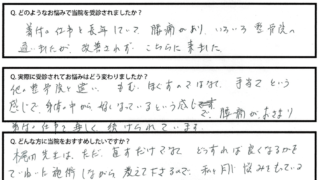 Q.どのようなお悩みで当院を受診されましたか?
着付の仕事を長年していて 腰痛があり、いろいろ整骨院へ
通いましたが、改善されず こちらに来ました。
Q.実際に受診されてお悩みはどう変わりましたか?
他の整骨院と違い もむ、ほぐすのではなく、手当てという
感じで、身体の中から良くなっているという感じで、腰痛がおさまり
着付の仕事も楽しく続けられています。
Q.どんな方に当院をおすすめしたいですか?
先生は、ただ、直すだけでなく どうすれば良くなるかを
施術しながら 教えて下さるので、私と同じ悩みをもっている